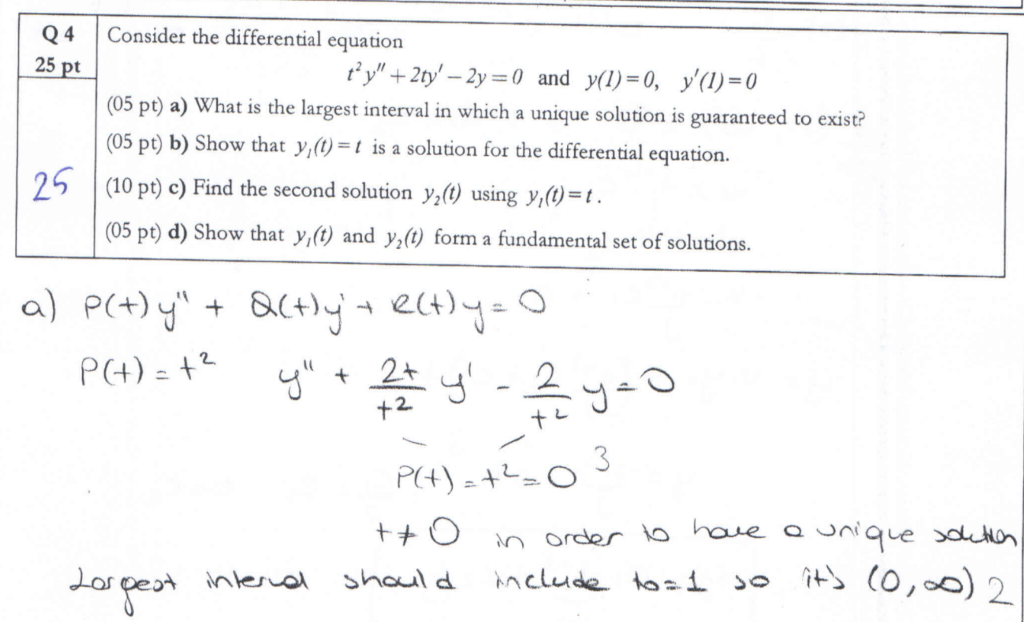 Q 4
25 pt
25
Consider the differential equation
t²y″ + 2ty′ – 2y = 0 and y(1) = 0, y′(1) = 0
(05 pt) a) What is the largest interval in which a unique solution is guaranteed to exist?
(05 pt) b) Show that y₁(t) = t is a solution for the differential equation.
(10 pt) c) Find the second solution y₂(t) using y₁(t) = t.
(05 pt) d) Show that y₁(t) and y₂(t) form a fundamental set of solutions.
a) P(t)y″ + Q(t)y′ + R(t)y = 0
P(t) = t² y″ + 2t/t² y′ - 2/t² y = 0
P(t) = t² = 0 3
t ≠ 0 in order to have a unique solution
Largest interval should include to=1 so it's (0,∞) 2